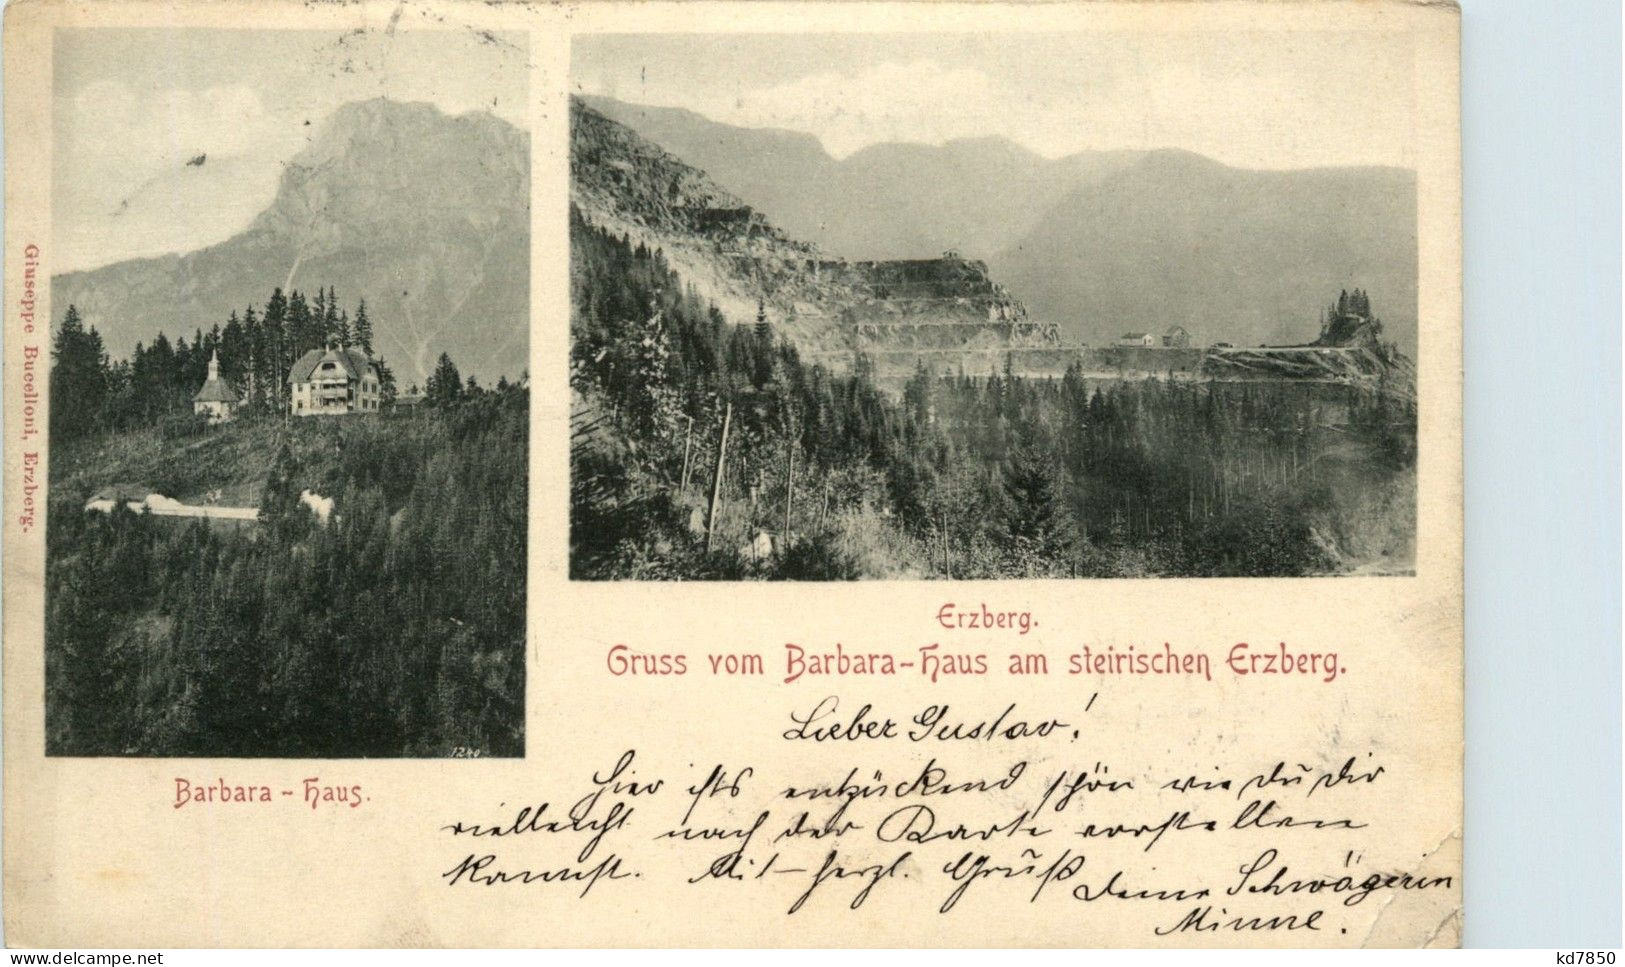 Giuseppe Bucelloni, Erzberg.
1240
Barbara-Haus.
Erzberg.
Gruss vom Barbara-Haus am steirischen Erzberg.
Lieber Gustav!
Hier ists entzückend schön wie Du Dir
vielleicht nach der Karte vorstellen
kannst. Mit herzl. Gruß Deine Schwägerin
Minne.
delcampe.net
kd7850